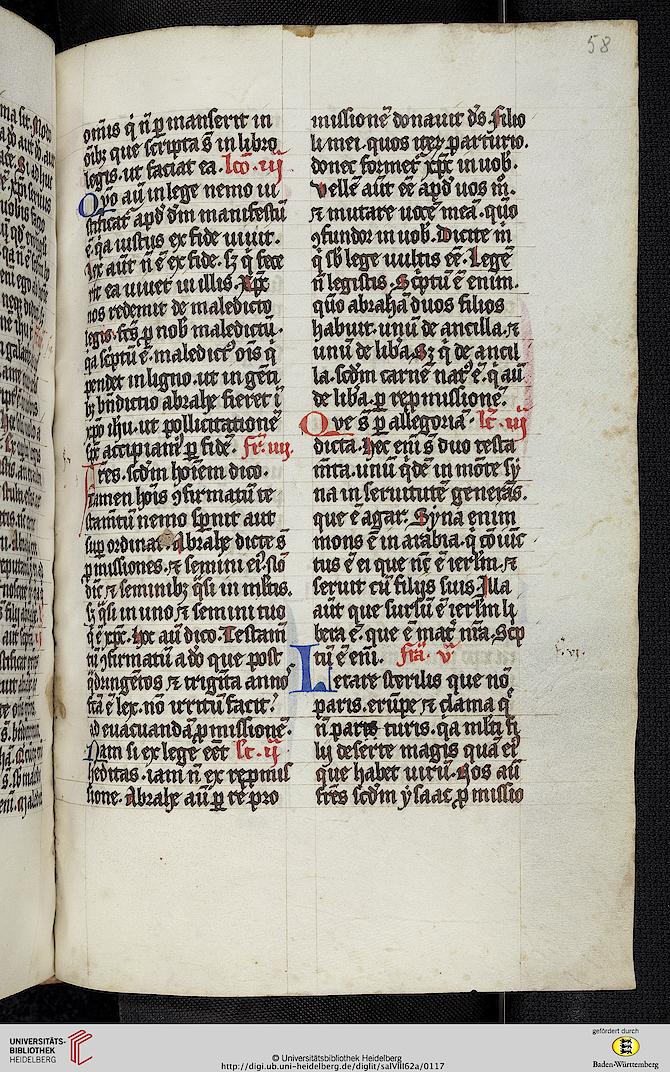 58
om̄is q̇ n̄ ꝑmanserit in
oīb; que scripta s̄ in libro
legis. ut faciat ea. lcō. iij
Qvo aū in lege nemo iu
stificat᷑ apd̄ dm̄ manifestū
ē. q̇a iustus ex fide uiuit.
lex aūt n̄ ē ex fide. sꝫ q̇ fece
rit ea uiuet in illis. Xp̄c
nos redemit de maledicto
legis. fc̄s ꝑ nob̄ maledictū.
q̇a sc̄ptū ē. maledict᷒ oīs q̇
pendet in ligno. ut in gēti
bꝫ bn̄dictio abrahe fieret ī
xp̄o ihū. ut pollicitationē
sp̄c accipiam᷒ ꝑ fidē. fr̄. iiij.
Fres. scdm̄ hoīem dico.
Tamen hoīs ꝯfirmatū te
stam̄tū nemo sp̄nit aut
suꝑ ordinat. Abrahe dicte s̄
ꝓmissiones. ⁊ semini ei᷒. nō
dic̄. ⁊ seminibꝫ q̇si in ml̄tis.
sꝫ q̇si in uno. ⁊ semini tuo
q̇ ē xp̄c. hoc aū dico. Testam̄
tū ꝯfirmatū a dō que post
q̇dringētos ⁊ trigīta annos
fc̄a ē lex. nō irritū facit᷑
ad euacuandā ꝓmissionē.
Nam si ex lege eēt lc̄. ij
hēditas. iam n̄ ex reꝓmis
sione. Abrahe aū ꝑ reꝓ
missionē donauit dš. filio
li mei. quos iteꝝ parturio.
donec formet᷑ xp̄c in uob̄.
Vellē aūt eē apd̄ uos m̄.
⁊ mutare uocē meā. quō
ꝯfundor in uob̄. Dicite m̄
q̇ sb̄ lege uultis eē. Legē
n̄ legistis. Sc̄ptū ē enim.
quō abrahā duos filios
habuit. unū de ancilla. ⁊
unū de lib̄a. Sꝫ q̇ de ancil
la. scdm̄ carnē nat᷒ ē. q̇ aū
de lib̄a. ꝑ reꝓmissionē.
Qve s̄ ꝑ allegoriā. lc̄. iij
dicta. hec eni s̄ duo testa
m̄ta. unū q̇dē in mōte sy
na in seruitutē generās.
que ē agar. Syna enim
mons ē in arabia. q̇ cōiūc
tus ē ei que nc̄ ē ierlm̄. ⁊
seruit cū filijs suis. Illa
aūt que sursū ē ierlm̄ li
bera ē. que ē mat̄ nr̄a. Sc̄p
tū ē eni. fīa. v
f. vi.
Letare sterilis que nō
paris. erūpe ⁊ clama q̇
n̄ parturis. q̇a ml̄ti fi
lij deserte magis quā ei᷒
que habet uirū. Nos aū
frēs scdm̄ ysaac ꝓmissio
UNIVERSITÄTS-
BIBLIOTHEK
HEIDELBERG
© Universitätsbibliothek Heidelberg
http://digi.ub.uni-heidelberg.de/diglit/salVIII62a/0117
gefördert durch
Baden-Württemberg